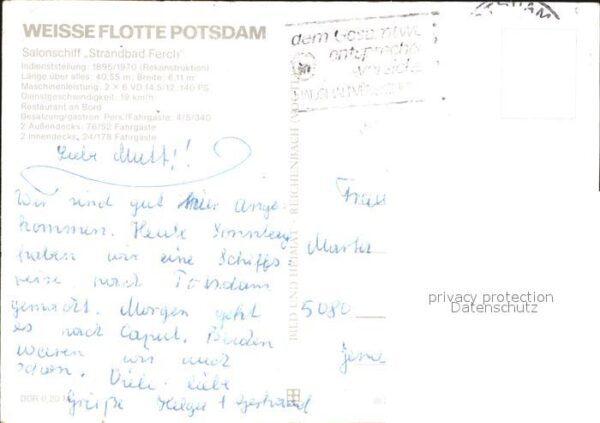 WEISSE FLOTTE POTSDAM
Salonschiff „Strandbad Ferch"
Indienststellung: 1895/1970 (Rekonstruktion)
Länge über alles: 40,55 m; Breite: 6,11 m
Maschinenleistung: 2 × 6 VD 14,5/12, 140 PS
Dienstgeschwindigkeit: 19 km/h
Restaurant an Bord
Besatzung/gastron. Pers./Fahrgäste: 4/5/340
2 Außendecks: 76/52 Fahrgäste
2 Innendecks: 34/178 Fahrgäste
Liebe Mutti!
Wir sind gut hier ange-
kommen. Heute Sonntag
haben wir eine Schiffs
reise nach Potsdam
gemacht. Morgen geht
es nach Caput.
waren wir auch
schon. Viele liebe
Grüße Helga + Gerhard
DDR 0,20 M
BILD UND HEIMAT REICHENBACH (VOGTL
dem Gesamtwe
entspreche
Frau
Martha
5080
Jena
privacy protection
Datenschutz